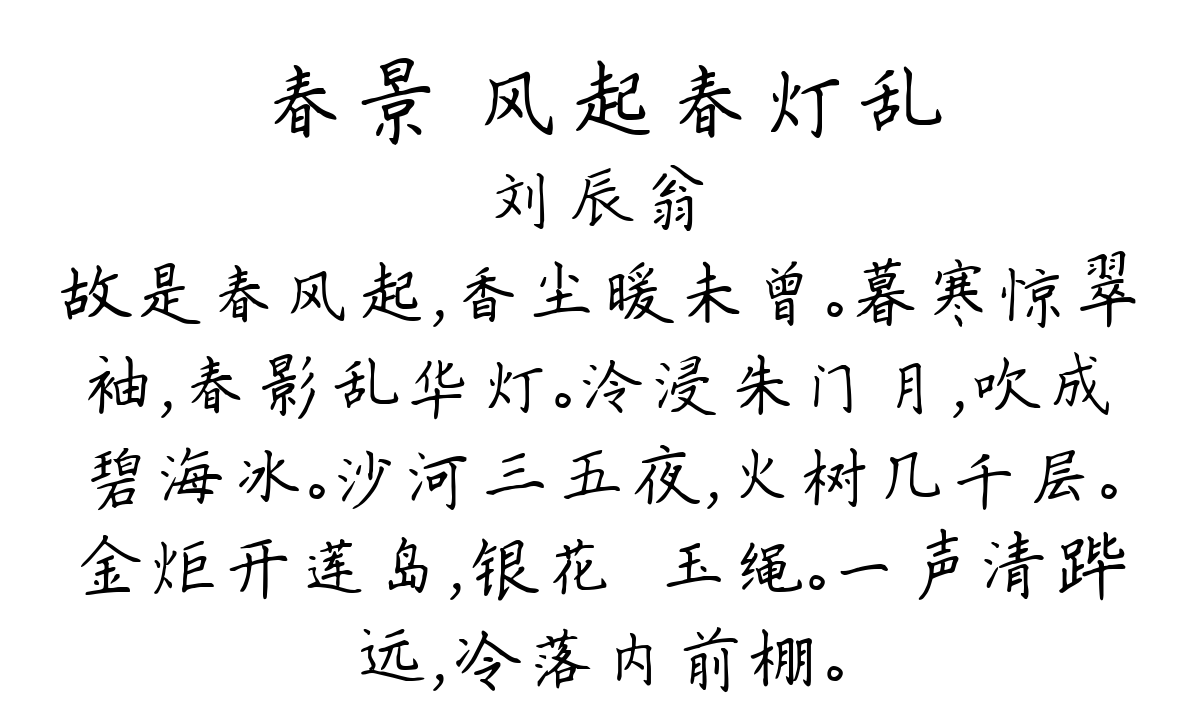 春景 风起春灯乱
刘辰翁
故是春风起,香尘暖未曾。暮寒惊翠
袖,春影乱华灯。泠浸朱门月,吹成
碧海冰。沙河三五夜,火树几千层。
金炬开莲岛,银花 玉绳。一声清跸
远,冷落内前棚。